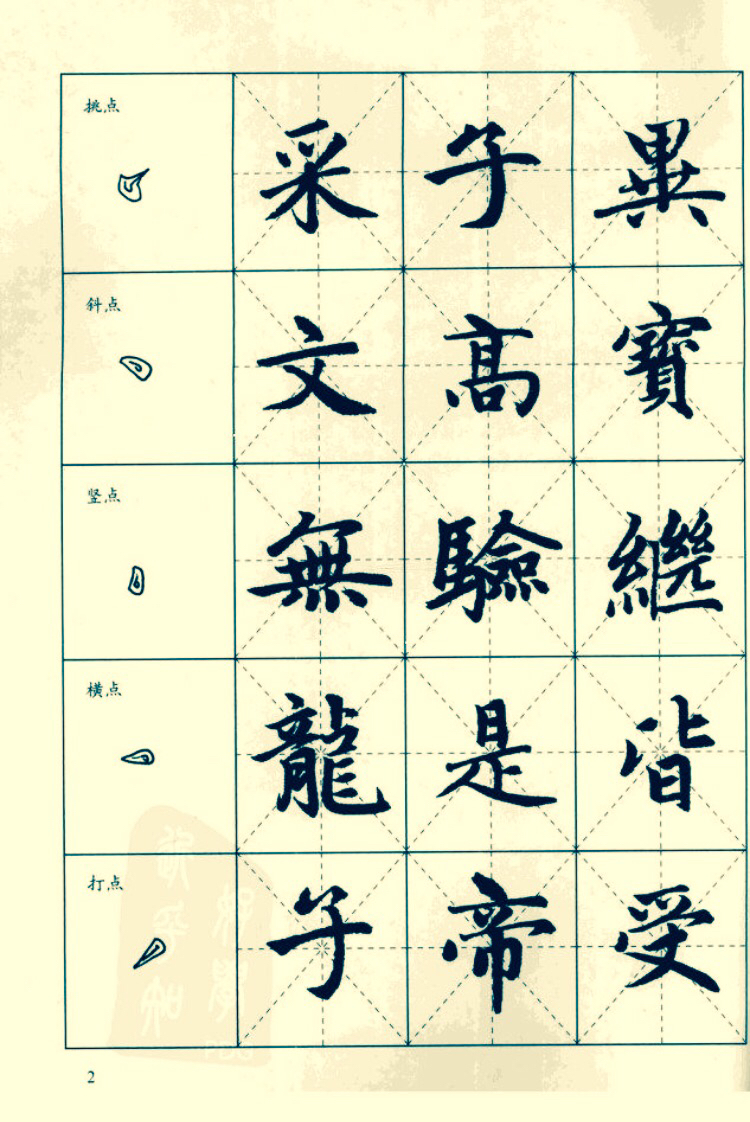 挑点 采 子 異
斜点 文 髙 寶
竖点 無 驗 繼
横点 龍 是 皆
打点 子 帝 受
2